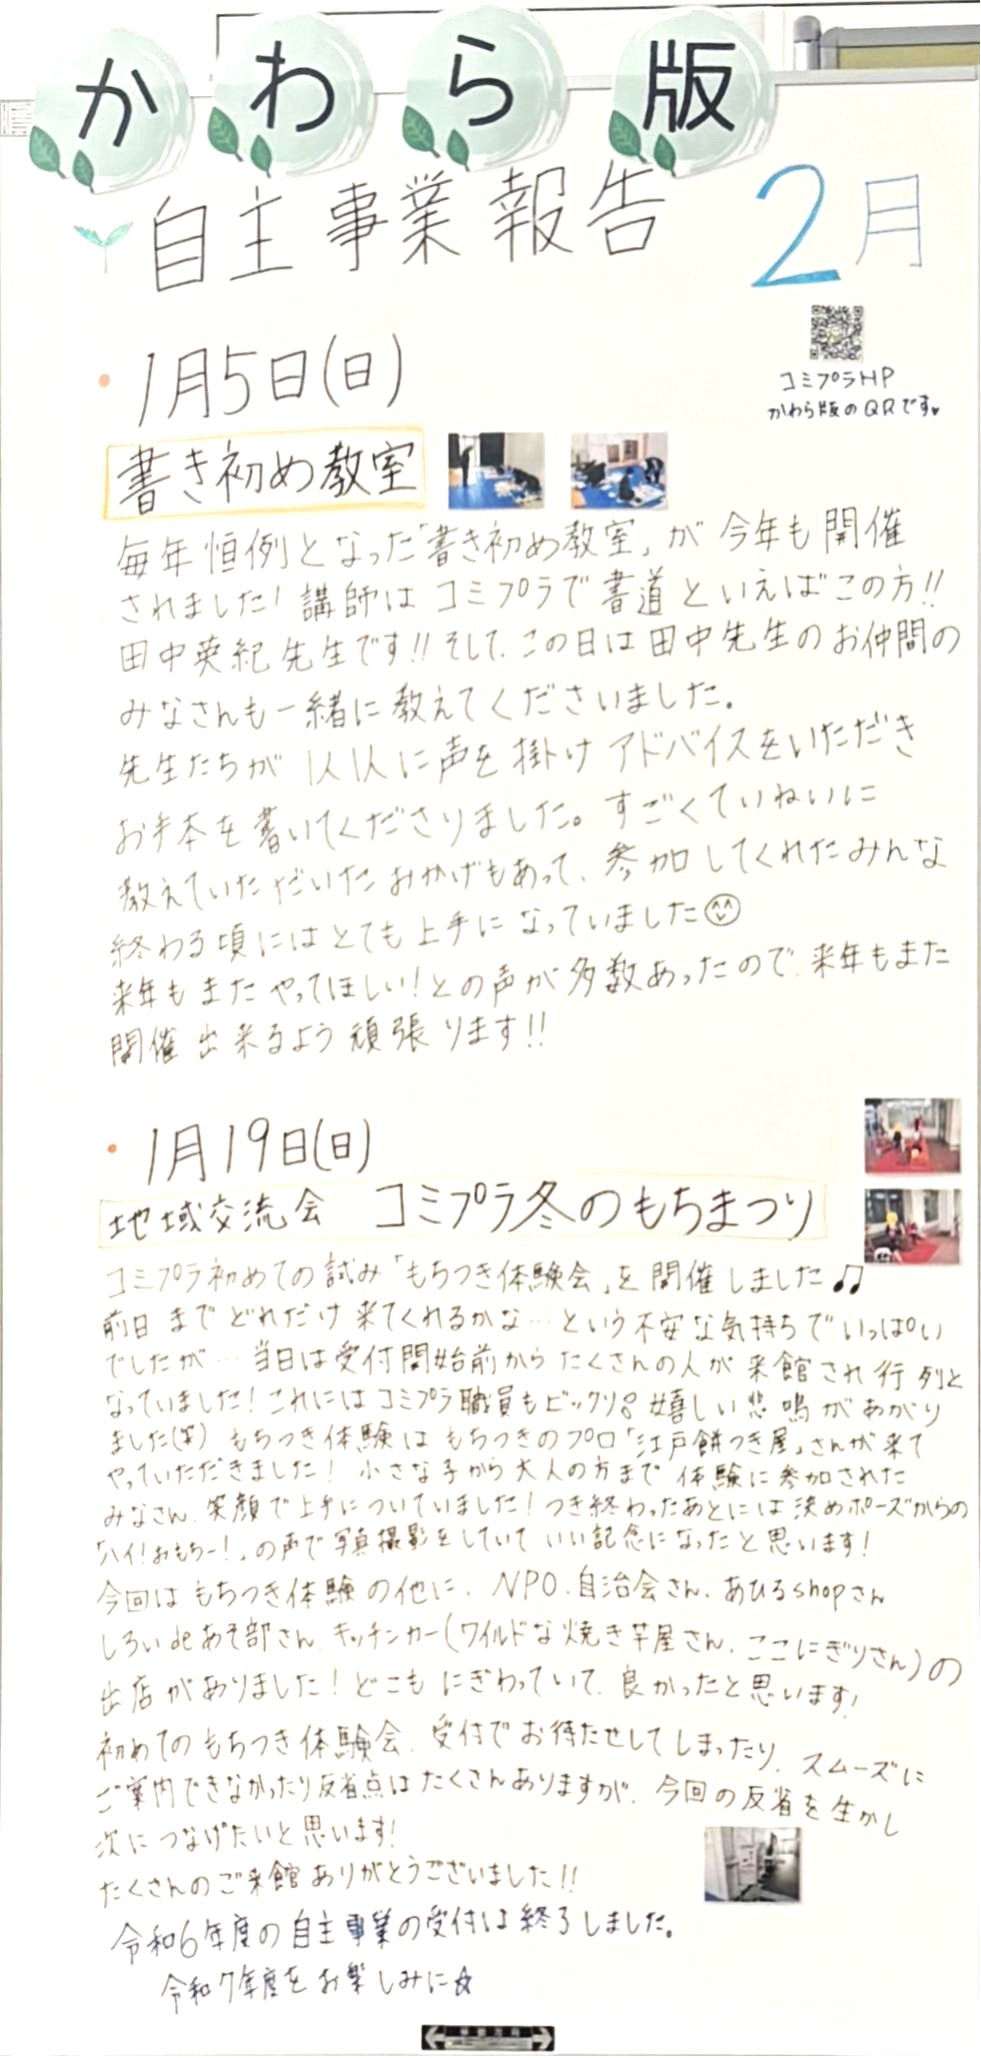 かわら版
自主事業報告 2月
コミプラHP
かわら版のQRです♥
・1月5日(日)
書き初め教室
毎年恒例となった「書き初め教室」が今年も開催
されました！講師はコミプラで書道といえばこの方!!
田中英紀先生です!!そして、この日は田中先生のお仲間の
みなさんも一緒に教えてくださいました。
先生たちが1人1人に声を掛けアドバイスをいただき
お手本を書いてくださりました。すごくていねいに
教えていただいたおかげもあって、参加してくれたみんな
終わる頃にはとても上手になっていました
来年もまたやってほしい！との声が多数あったので、来年もまた
開催出来るよう頑張ります!!
・1月19日(日)
地域交流会 コミプラ冬のもちまつり
コミプラ初めての試み「もちつき体験会」を開催しました♫
前日までどれだけ来てくれるかな…という不安な気持ちでいっぱい
でしたが…当日は受付開始前からたくさんの人が来館され行列と
なっていました！これにはコミプラ職員もビックリ!!嬉しい悲鳴があがり
ました(笑) もちつき体験はもちつきのプロ「江戸餅つき屋」さんが来て
やっていただきました！ 小さな子から大人の方まで体験に参加された
みなさん、笑顔で上手についていました！つき終わったあとには決めポーズからの
「ハイ！おもちー！」の声で写真撮影をしていていい記念になったと思います！
今回はもちつき体験の他に、NPO、自治会さん、あひるshopさん
しろいdeあそ部さん、キッチンカー(ワイルドな焼き芋屋さん、ここにぎりさん)の
出店がありました！どこもにぎわっていて、良かったと思います！
初めてのもちつき体験会、受付でお待たせしてしまったり、スムーズに
ご案内できなかったり反省点はたくさんありますが、今回の反省を生かし
次につなげたいと思います！
たくさんのご来館ありがとうございました!!
令和6年度の自主事業の受付は終了しました。
令和7年度をお楽しみに☆